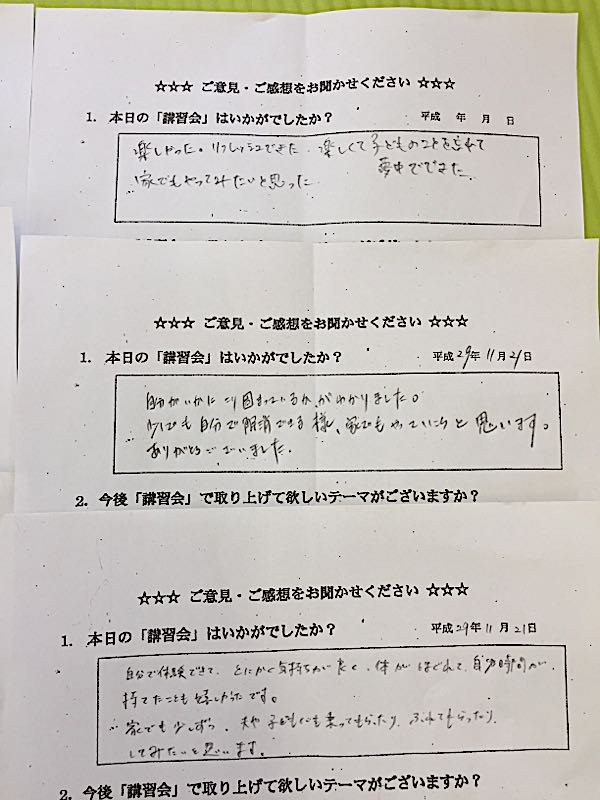 ☆☆☆ ご意見・ご感想をお聞かせください ☆☆☆
1. 本日の「講習会」はいかがでしたか？ 平成 年 月 日
楽しかった。リフレッシュできた。楽しくて子どものことを忘れて
夢中でできた
家でもやってみたいと思った
☆☆☆ ご意見・ご感想をお聞かせください ☆☆☆
1. 本日の「講習会」はいかがでしたか？ 平成29年11月21日
自分がいかにこり固まっているかがわかりました。
少しでも自分で解消できる様、家でもやっていこうと思います。
ありがとうございました。
2. 今後「講習会」で取り上げて欲しいテーマがございますか？
☆☆☆ ご意見・ご感想をお聞かせください ☆☆☆
1. 本日の「講習会」はいかがでしたか？ 平成29年11月21日
自分で体験できて、とにかく気持ちが良く、体がほぐれて、自分時間が
持てたことも嬉しかったです。
家でも少しずつ、夫や子どもにも乗ってもらったり、ふれてもらったり
してみたいと思います。
2. 今後「講習会」で取り上げて欲しいテーマがございますか？